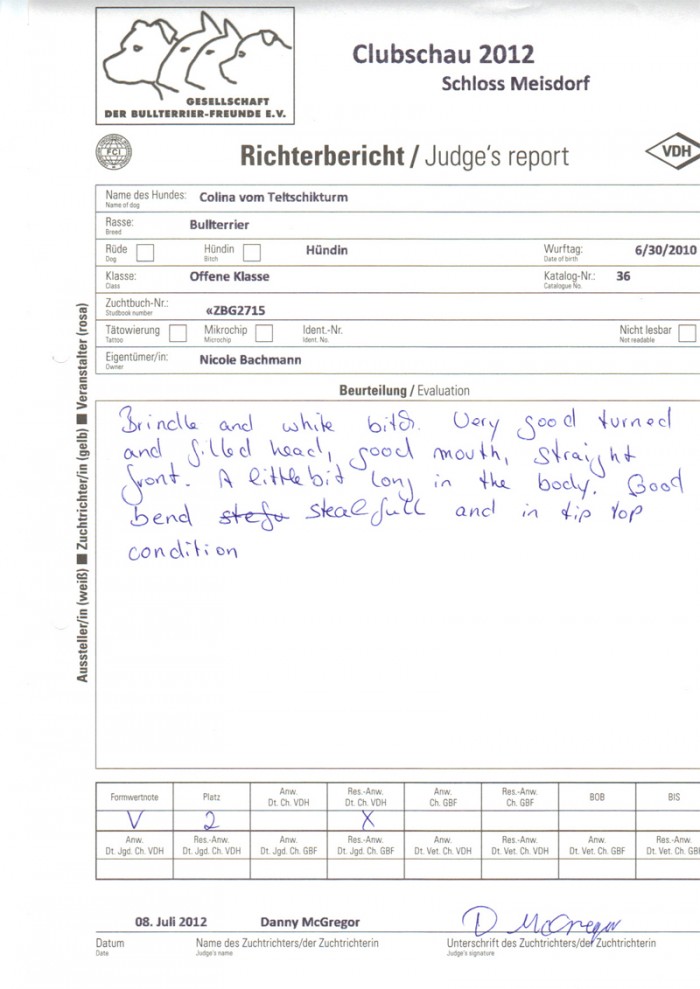 Clubschau 2012
Schloss Meisdorf
GESELLSCHAFT
DER BULLTERRIER-FREUNDE E.V.
FCI
Richterbericht / Judge's report
VDH
Name des Hundes: Colina vom Teltschikturm
Name of dog
Rasse: Bullterrier
Breed
Rüde Hündin Hündin Wurftag: 6/30/2010
Dog Bitch Date of birth
Klasse: Offene Klasse Katalog-Nr.: 36
Class Catalogue No.
Zuchtbuch-Nr.: «ZBG2715
Studbook number
Tätowierung Mikrochip Ident.-Nr. Nicht lesbar
Tattoo Microchip Ident. No. Not readable
Eigentümer/in: Nicole Bachmann
Owner
Beurteilung / Evaluation
Brindle and white bitch. Very good turned
and filled head, good mouth, straight
front. A little bit long in the body. Good
bend stealfull and in tip top
condition
Aussteller/in (weiß) ■ Zuchtrichter/in (gelb) ■ Veranstalter (rosa)
Formwertnote Platz Anw. Dt. Ch. VDH Res.-Anw. Dt. Ch. VDH Anw. Ch. GBF Res.-Anw. Ch. GBF BOB BIS
V 2 X
Anw. Dt. Jgd. Ch. VDH Res.-Anw. Dt. Jgd. Ch. VDH Anw. Dt. Jgd. Ch. GBF Res.-Anw. Dt. Jgd. Ch. GBF Anw. Dt. Vet. Ch. VDH Res.-Anw. Dt. Vet. Ch. VDH Anw. Dt. Vet. Ch. GBF Res.-Anw. Dt. Vet. Ch. GBF
08. Juli 2012 Danny McGregor D McGregor
Datum Name des Zuchtrichters/der Zuchtrichterin Unterschrift des Zuchtrichters/der Zuchtrichterin
Date Judge's name Judge's signature